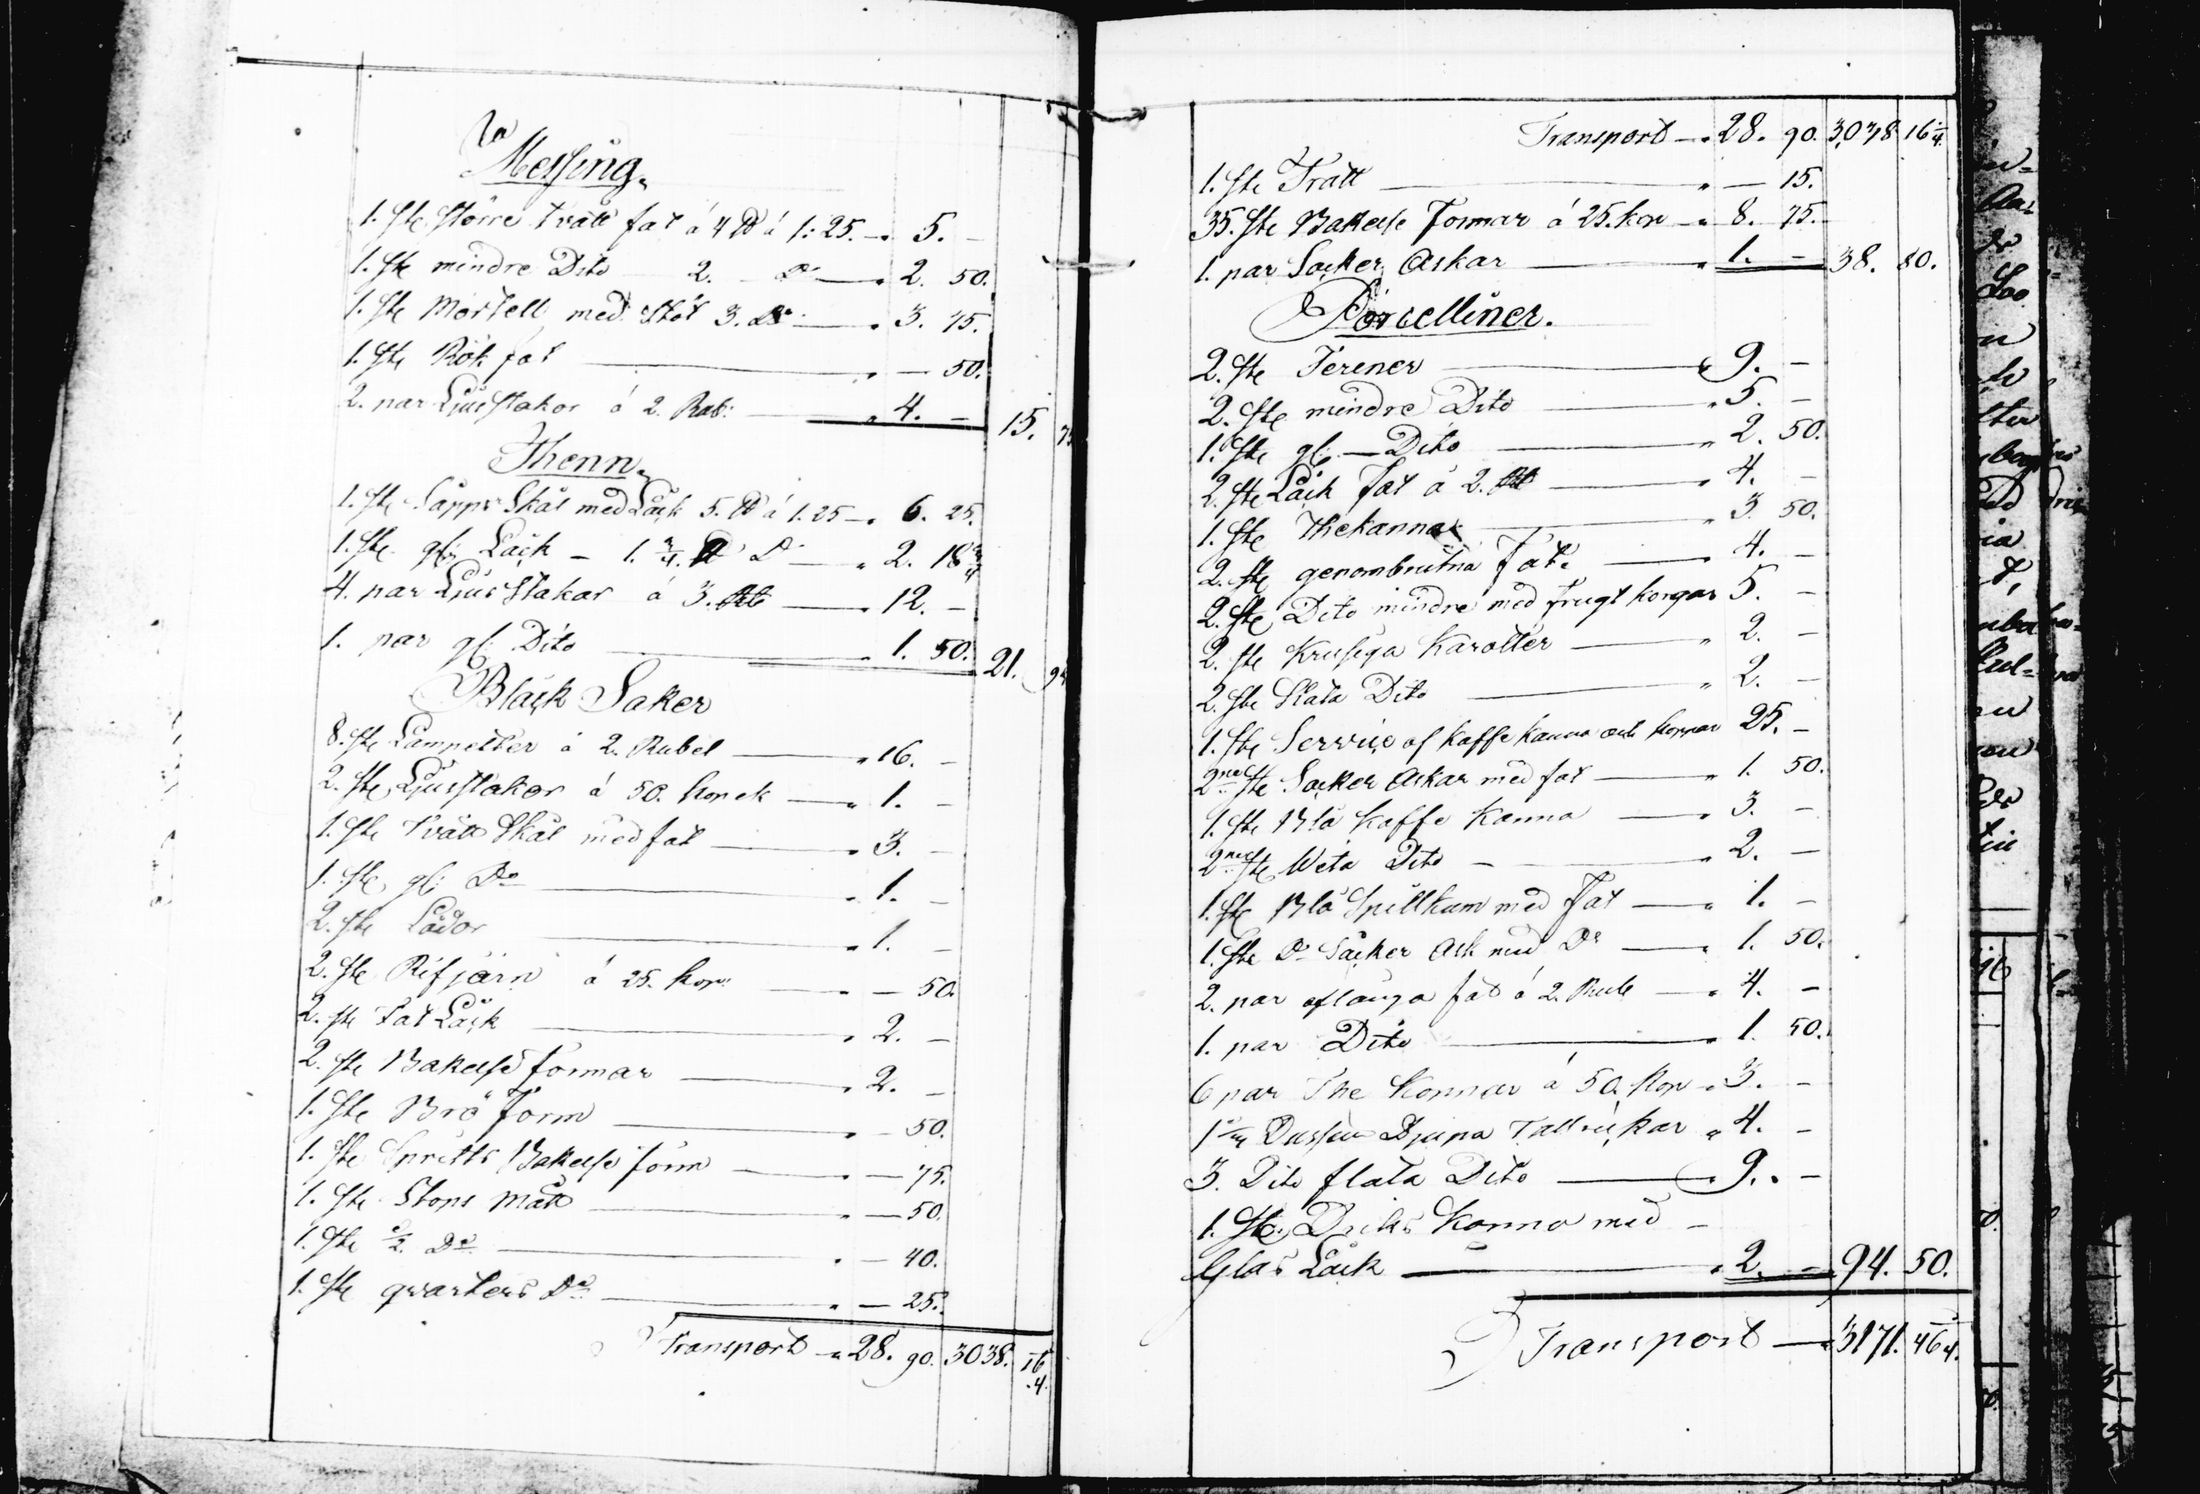 Messing.
1. st. större tvätt fat á 4 ℔ á 1:25. 5. –
1. st. mindre Dito 2. Do 2. 50.
1. st. Mortell med stöt 3. Do 3. 75.
1. st. Rök fat – 50.
2. par Ljusstakar á 2. Rub: 4. – 15. 75
Thenn.
1. st. Såpps Skål med Låck 5. ℔ á 1.25 6. 25.
1. st. gl: Låck – 1. 3/4. ℔ Do 2. 18 3/4
4. par Ljus Stakar á 3. Rb 12. –
1. par gl: Dito 1. 50. 21. 94
Bläck Saker
8. st. Lampetter á 2. Rubel 16. –
2. st. Ljusstakar á 50. Kopek 1. –
1. st. Tvätt Skål med fat 3. –
1. st. gl: Do 1. –
2. st. Lådor 1. –
2. st. Rifjärn á 25. Kop: – 50.
2. st. Fat Låck 2. –
2. st. Bakelse formar 2. –
1. st. Brö form – 50.
1. st. Spritts Bakelse form – 75.
1. st. Stops Mått – 50.
1. st. 1/2. Do – 40.
1. st. qvarters Do – 25.
Transport 28. 90. 3038. 16 1/4.
Transport 28. 90. 3038 16 1/4.
1. st. Tratt – 15.
35. st. Bakelse Formar á 25. kop 8. 75.
1. par Såcker Askar 1. – 38. 80.
Porcelliner.
2. st. Terener 9. –
2. st. mindre Dito 5. –
1. st. gl: – Dito 2. 50.
2. st. Låck Fat á 2. Rb 4. –
1. st. Thekanna 3. 50.
2. st. genombrutna Fat. 4. –
2. st. Dito mindre med frugt korgar 5. –
2. st. Krusiga Karotter 2. –
2. st. Slata Dito 2. –
1. st. Servise af Kaffe kanna och koppar 25. –
2ne st. Såcker Askar med fat 1. 50.
1. st. Blå Kaffe Kanna 3. –
2ne st. Wita Dito – 2. –
1. st. Blå Spillkum med Fat 1. –
1. st. Do Såcker Ask med Do 1. 50.
2. par aflånga fat á 2. Rub 4. –
1. par Dito 1. 50.
6 par The Koppar á 50. Kop 3. –
1 Dussin Djupa Tallrickar 4. –
3. Dito flata Dito 9. –
1. st. Dricks Kanna med –
Glas Låck 2. – 94. 50.
Transport 3171. 46 1/4.